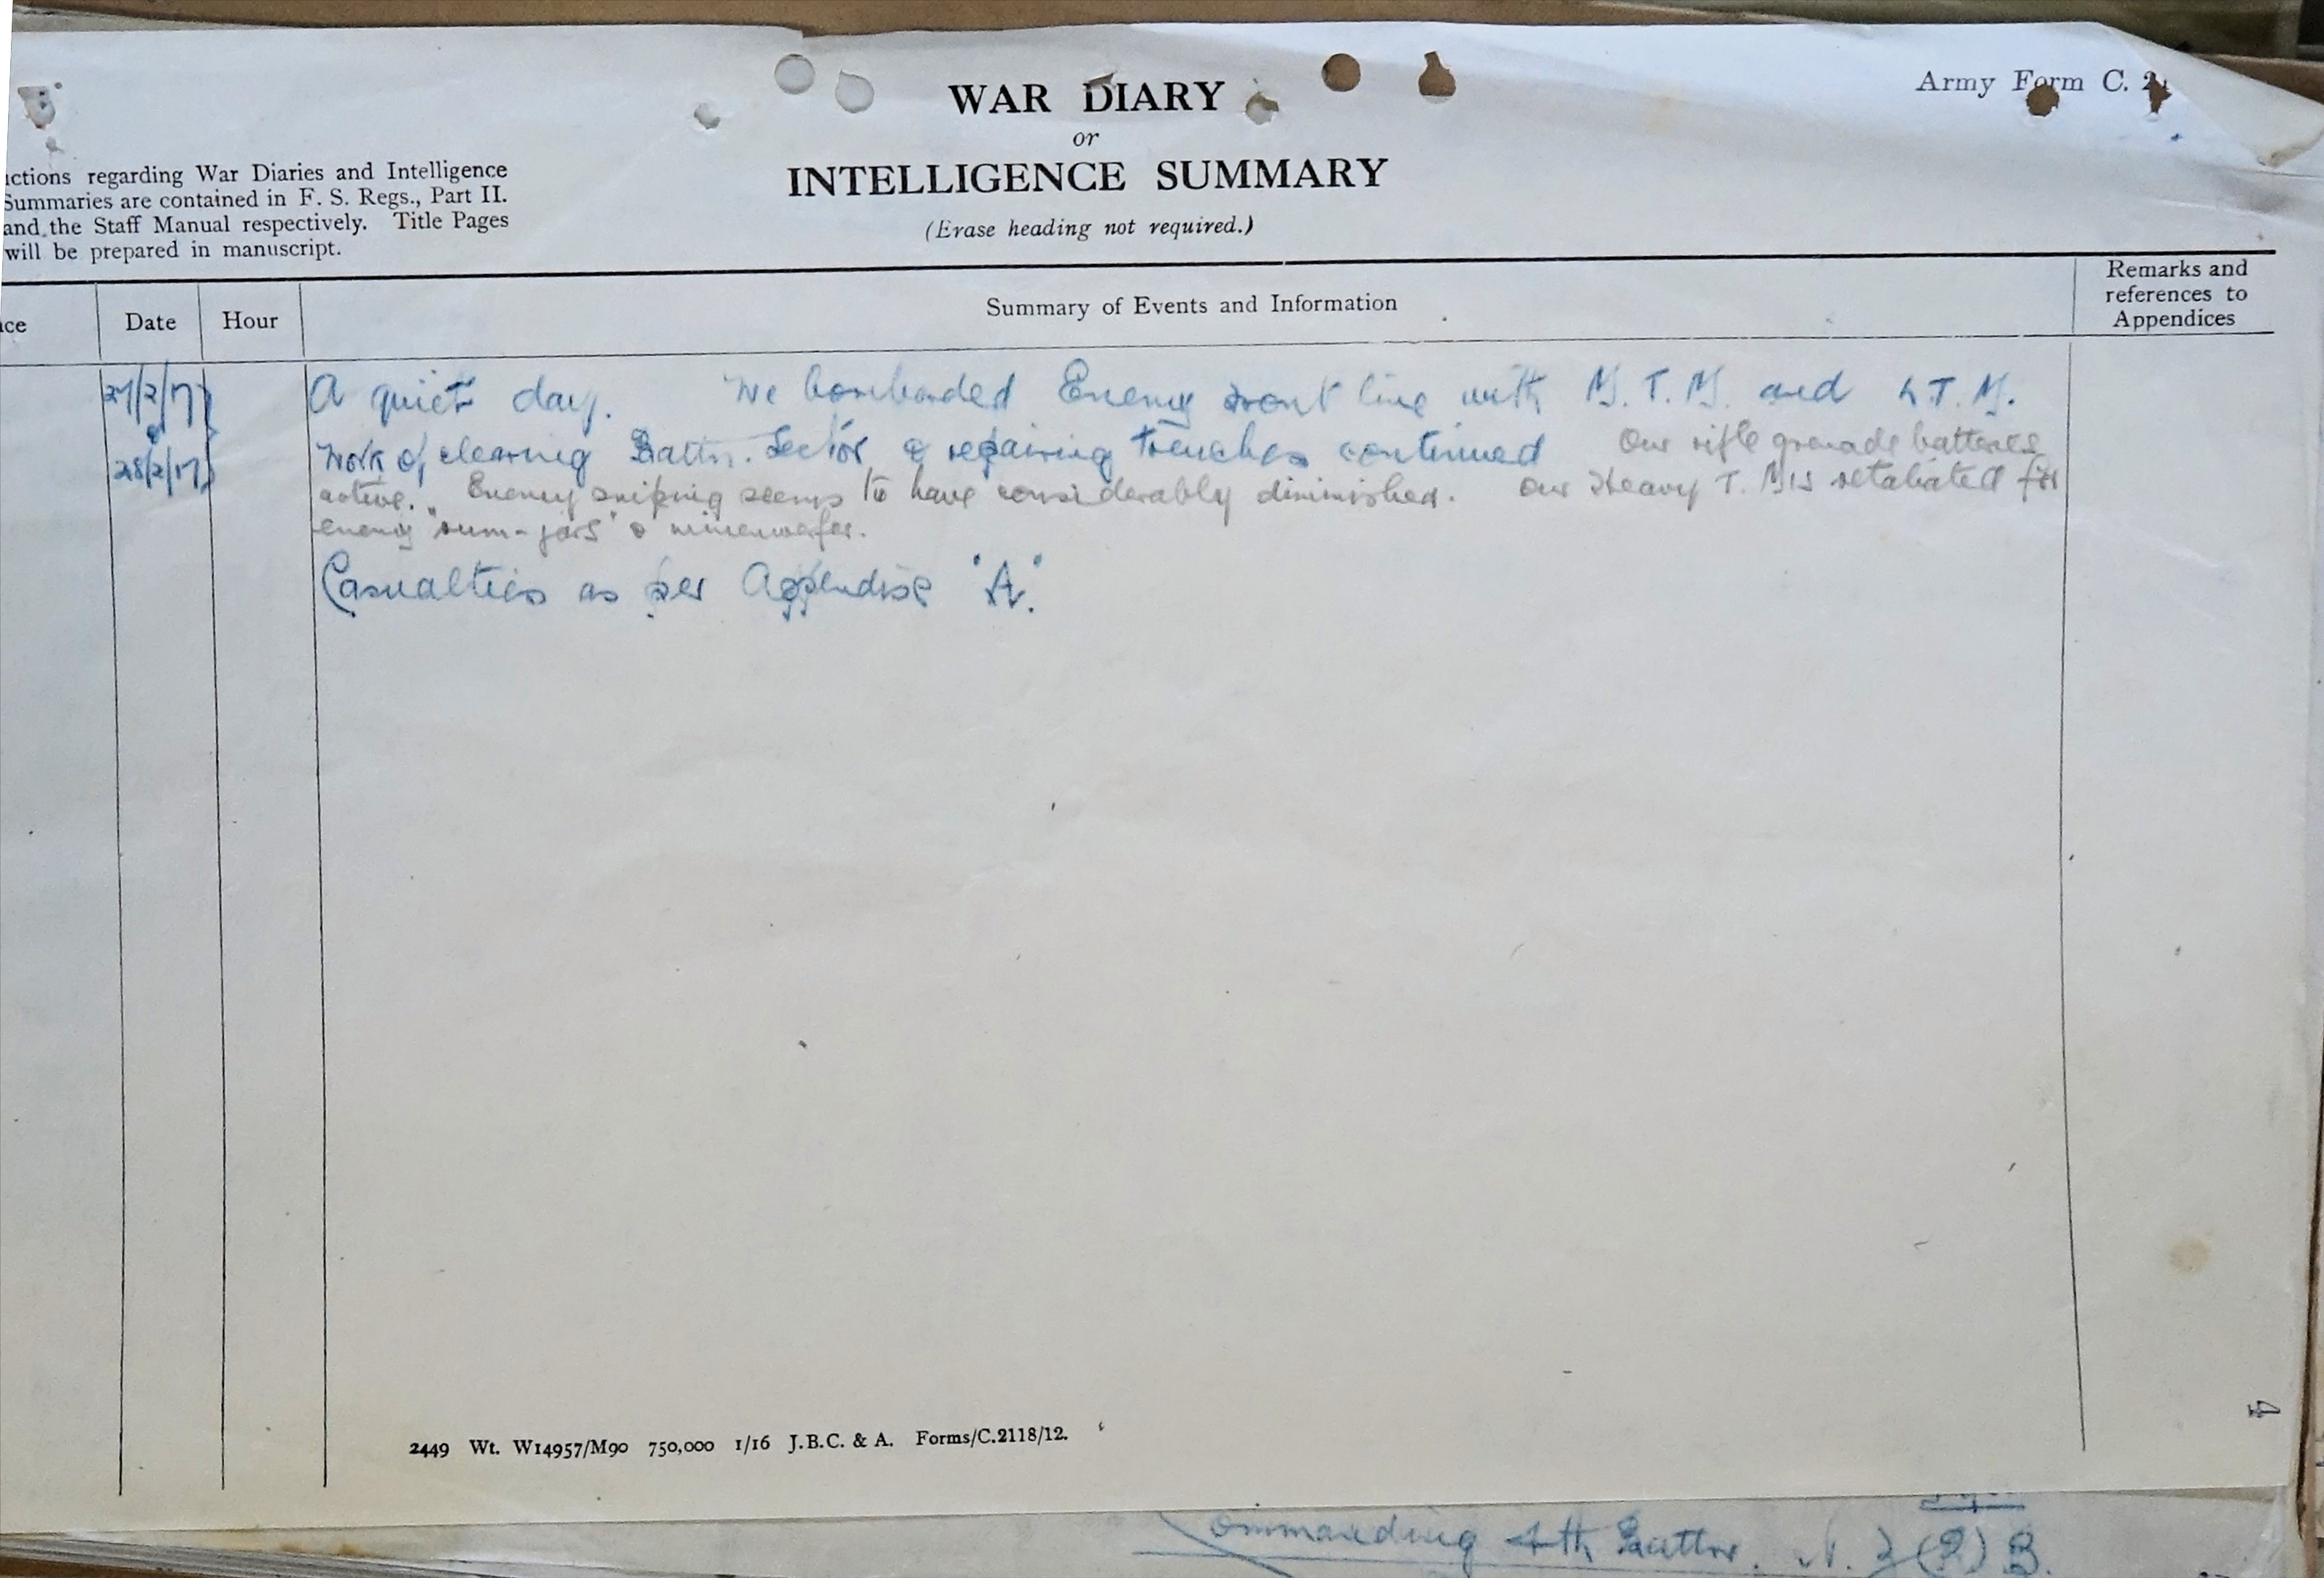 Army Form C. 2
WAR DIARY
or
INTELLIGENCE SUMMARY
(Erase heading not required.)
ictions regarding War Diaries and Intelligence
Summaries are contained in F. S. Regs., Part II.
and the Staff Manual respectively. Title Pages
will be prepared in manuscript.
ice
Date
Hour
Summary of Events and Information
Remarks and
references to
Appendices
27/2/17
&
28/2/17
A quiet day. We bombarded Enemy front line with M. T. M. and L T. M.
Work of clearing Battn. Sector & repairing trenches continued Our rifle grenade batteries
active. Enemy sniping seems to have considerably diminished. Our Heavy T. M's retaliated for
enemy "rum-jars" & minenwerfer.
Casualties as per Appendix "A".
2449 Wt. W14957/M90 750,000 1/16 J.B.C. & A. Forms/C.2118/12.
4
Commanding 4th Battn. N. Z (R) B.